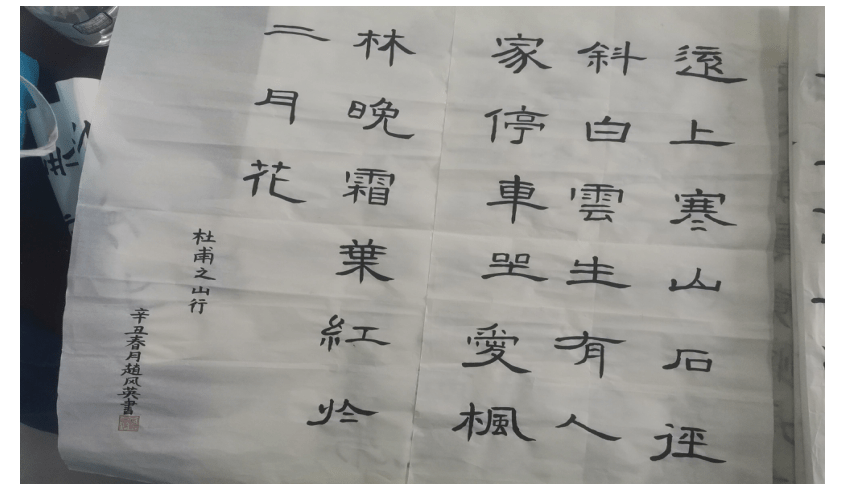 遠上寒山石徑
斜白雲生有人
家停車坐愛楓
林晚霜葉紅於
二月花
杜甫之山行
辛丑春月趙风英書